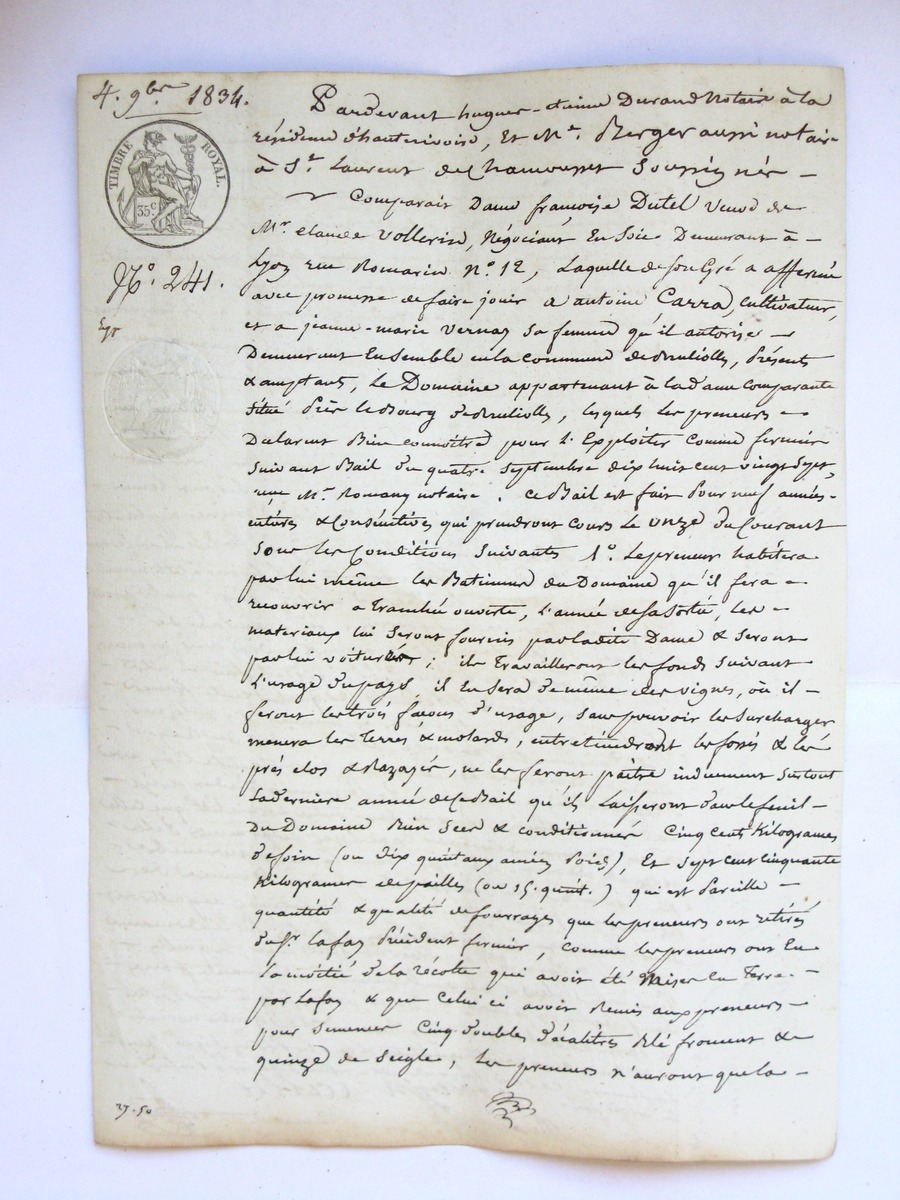 4. 9bre 1834.
TIMBRE ROYAL.
35c
N.o 241.
Exp
Pardevant hugues-etienne Durand Notaire à la
résidence d'hauterivoire, Et Me. Berger aussi notaire
à St. Laurent de Chamousset Soussignés —
Comparait Dame françoise Dutel Veuve de
Mr. Claude Vollerin, Négociant En Soie Demeurant à —
Lyon rue Romarin N.o 12, Laquelle de son Gré a affermé
avec promesse de faire jouir a antoine Carra, cultivateur,
et a jeanne-marie Vernay Sa femme qu'il autorise —
Demeurant Ensemble en la commune de Brullioles, Présents
& acceptants, Le Domaine appartenant à la dame comparante
Situé Près le Bourg de Brullioles, lesquels les preneurs —
Déclarent Bien connoître pour l'Exploiter Comme fermier
Suivant Bail du quatre Septembre dix huit cent vingt Sept,
reçu Me. Romany notaire. Ce Bail est fait Pour neuf années
entières & Consécutives qui prendront cours Le onze du Courant
Sous les Conditions Suivantes 1.o Le preneur habitera
par lui même les Batimens du Domaine qu'il fera —
recouvrir a Tranchée ouverte, L'année de sa Sortie, les —
materiaux lui Seront fournis par ladite Dame & Seront
par lui voiturés; ils Travailleront les fonds Suivant
L'usage du pays, il En Sera de même des vignes, où il —
feront les trois façons d'usage, Sans pouvoir les Surcharger
menera les Terres & molards, entretiendront les fossés & les
prés clos & Razagés, ne les feront paître induement Surtout
La dernière année de Ce Bail qu'ils Laisseront dans le fenil —
Du Domaine Bien Secs & conditionnés Cinq cents Kilogrames
de foin (ou Dix quintaux anciens Poids), Et Sept cent cinquante
Kilogrames de pailles (ou 15. quint.) qui est Pareille —
quantité & qualité de fourrages que les preneurs ont retirés
du Sr. Lafay Précédent fermier, Comme les preneurs ont Eu
La moitié de la récolte qui avoit été Mise en Terre —
par Lafay & que Celui ci avoit Remis aux preneurs —
pour Semence Cinq doubles Décalitres Blé froment &
quinze de Seigle, Les preneurs n'auront que la —
27.50